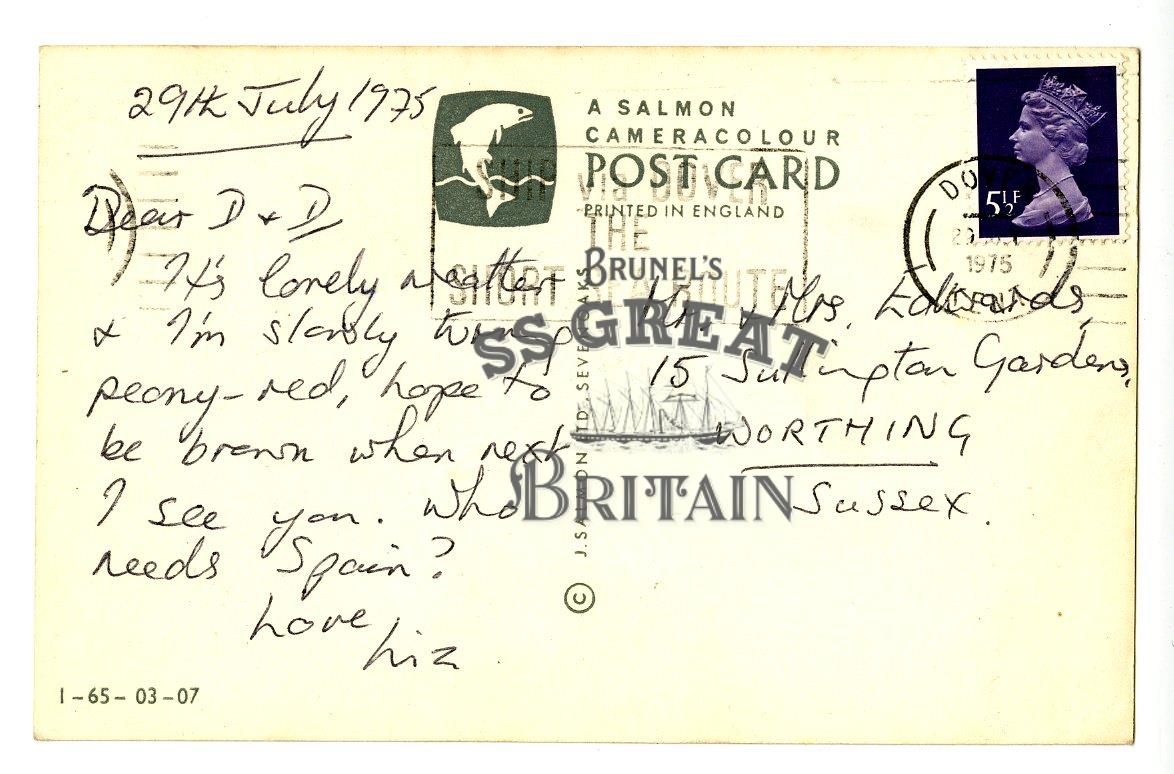 29th July 1975
Dear D & D,
It's lovely weather
& I'm slowly turning
peony-red, hope to
be brown when next
I see you. Who
needs Spain?
Love,
Liz
1-65-03-07
A SALMON
CAMERACOLOUR
POST CARD
PRINTED IN ENGLAND
SHIP via DOVER
THE
SHORT SEA ROUTE
BRUNEL'S
SS GREAT
BRITAIN
© J. SALMON LTD., SEVENOAKS
5½P
DOVER
29
1975
KENT
Mr. & Mrs. Edwards,
15 Sullington Gardens,
WORTHING
Sussex.